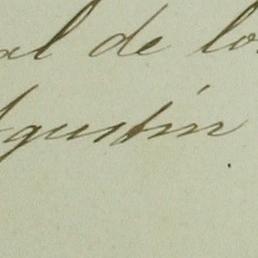 al de lo
Agustín